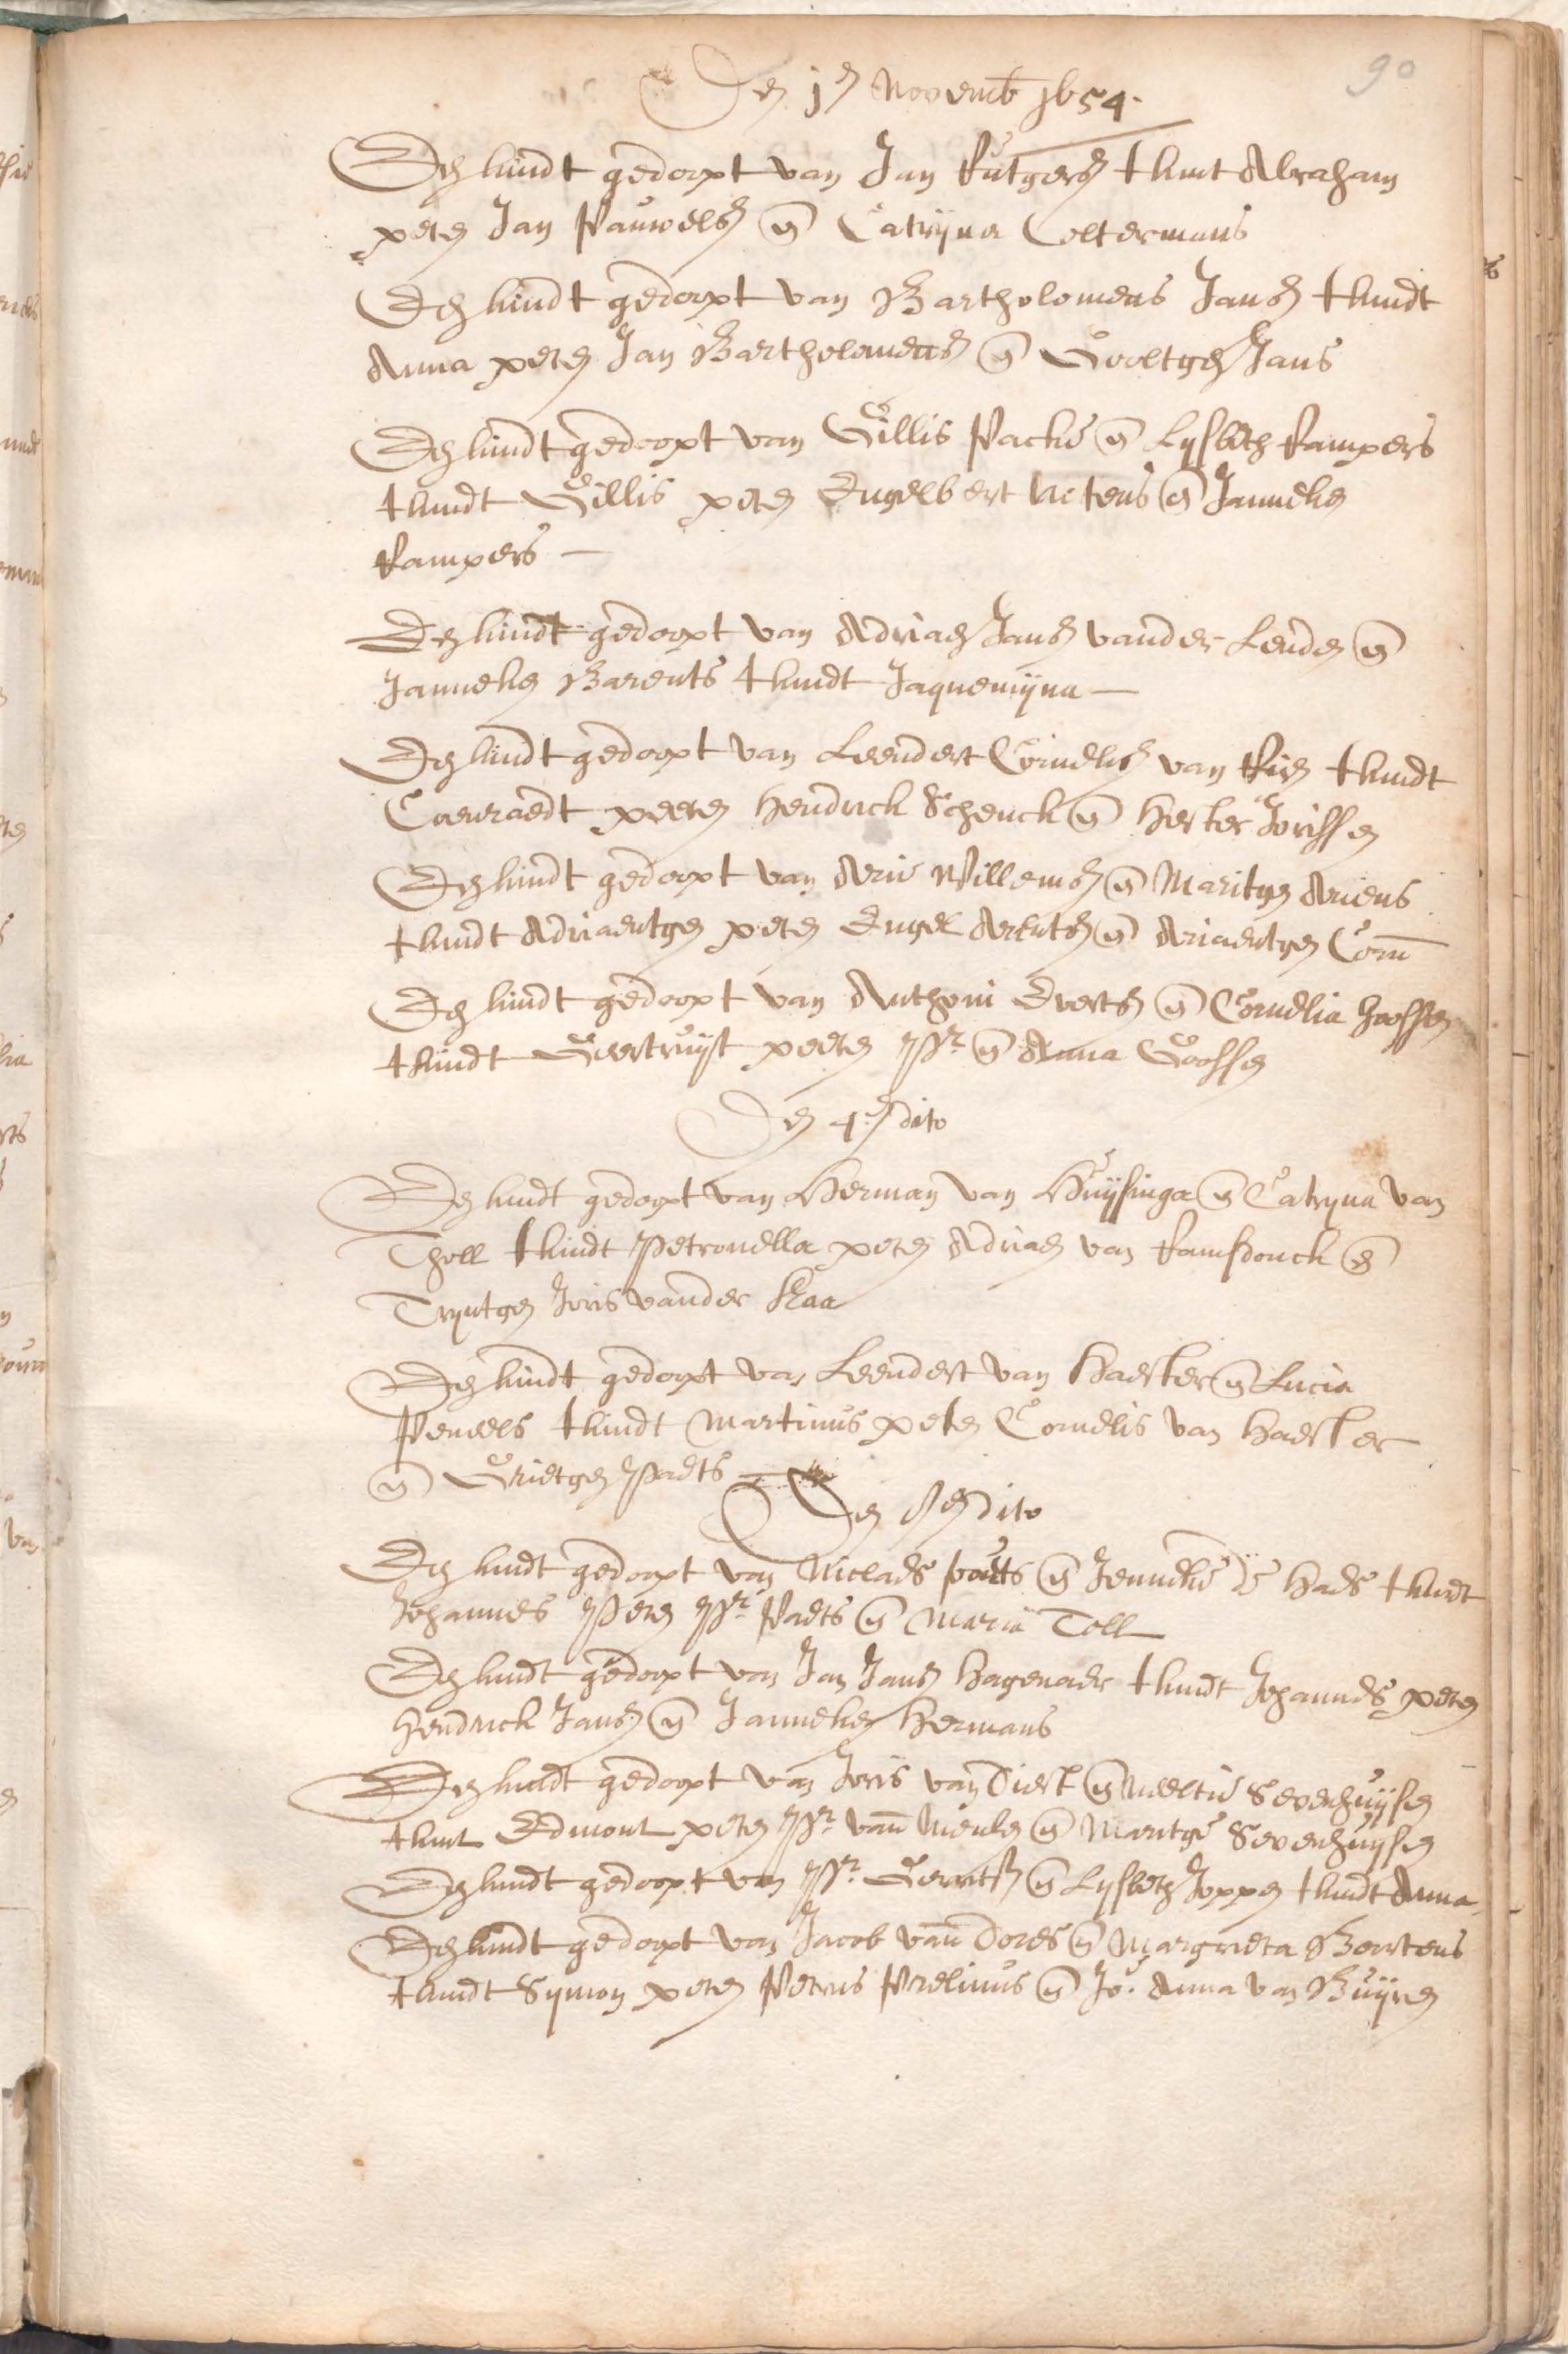 90
Den jen Novemb 1654.
Een kindt gedoopt van Jan Rutgers tkint Abraham
peten Jan Pauwels en Catrijna Coltermans
Een kindt gedoopt van Bartholomeus Jans tkindt
Anna peten Jan Bartholomeus en Jans
Een kindt gedoopt van Gillis Packe en Lysbeth Rampers
tkindt Gillis peten Engelbert Netens en Janneken
Rampers
Een kindt gedoopt van Adriaen Jans vander Lenden en
Janneken Barents tkindt Jaquemijna
Een kindt gedoopt van Leendert Cornelis van tkindt
Coenraedt peeten Hendrick Schenck en Hester Jorissen
Een kindt gedoopt van Arie Willems en Maritgen Ariens
tkindt Adriaentgen peten Engel en Ariaentgen Corn
Een kindt gedoopt van Anthoni Everts en Cornelia
tkindt Geertruijt peeten Pr en Anna Goossen
Den 4en dito
Een kindt gedoopt van Herman van Huijsinga en Catryna van
Tholl tkindt Petronella peten Adriaen van Ramsdonck en
Tryntgen Joris vander Kaa
Een kindt gedoopt van Leendert van Haester en Lucia
tkindt Martinus peten Cornelis van Haester
en Grietgen Paets
Den 8en dito
Een kindt gedoopt van Niclaes paets en Jenneke de Haes tkindt
Johannes Peten Pr Paets en Maria Toll
Een kindt gedoopt van Jan Jans Hagenaer tkindt Johannes peten
Hendrick Jans en Janneken Hermans
Een kindt gedoopt van Joris van Diest en Neeltie Sevenhuijsen
tkint Edmont peten Pr van en Maritge Sevenhuijsen
Een kindt gedoopt van Pr Gerrits en Lysbeth Joppen tkindt Anna
Een kindt gedoopt van Jacob van Dores en Margrieta Bontens
tkindt Symon peten Petrus en Jo. Anna van Buijren